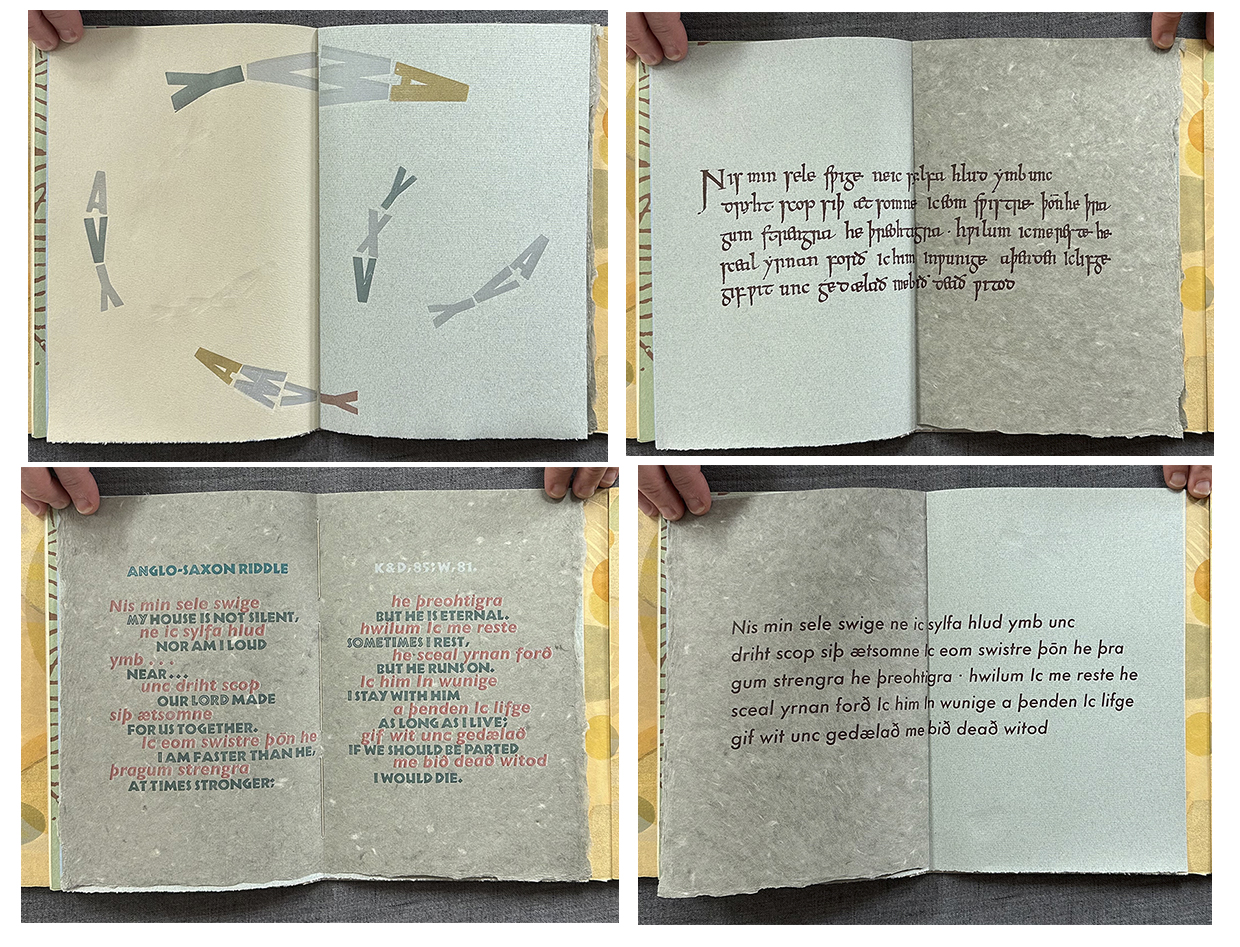 AVY
YXV
Nis min sele sƿige ne ic sylfa hlud ymb unc
dryht scop siþ æt somne ic eom sƿiftre þōn he þra
gum strengra he þreohtigra · hƿilum ic me reste he
sceal yrnan forð ic him inƿunige a þenden ic lifge
gif ƿit unc gedælað me bið deað ƿitod
ANGLO-SAXON RIDDLE
Nis min sele swige
MY HOUSE IS NOT SILENT,
ne ic sylfa hlud
NOR AM I LOUD
ymb . . .
NEAR . . .
unc driht scop
OUR LORD MADE
siþ ætsomne
FOR US TOGETHER.
Ic eom swistre þōn he
I AM FASTER THAN HE,
þragum strengra
AT TIMES STRONGER;
K & D, 85; W, 81.
he þreohtigra
BUT HE IS ETERNAL.
hwilum Ic me reste
SOMETIMES I REST,
he sceal yrnan forð
BUT HE RUNS ON.
Ic him In wunige
I STAY WITH HIM
a þenden Ic lifge
AS LONG AS I LIVE;
gif wit unc gedælað
IF WE SHOULD BE PARTED
me bið deað witod
I WOULD DIE.
Nis min sele swige ne ic sylfa hlud ymb unc
driht scop siþ ætsomne Ic eom swistre þōn he þra
gum strengra he þreohtigra · hwilum Ic me reste he
sceal yrnan forð Ic him In wunige a þenden Ic lifge
gif wit unc gedælað me bið deað witod